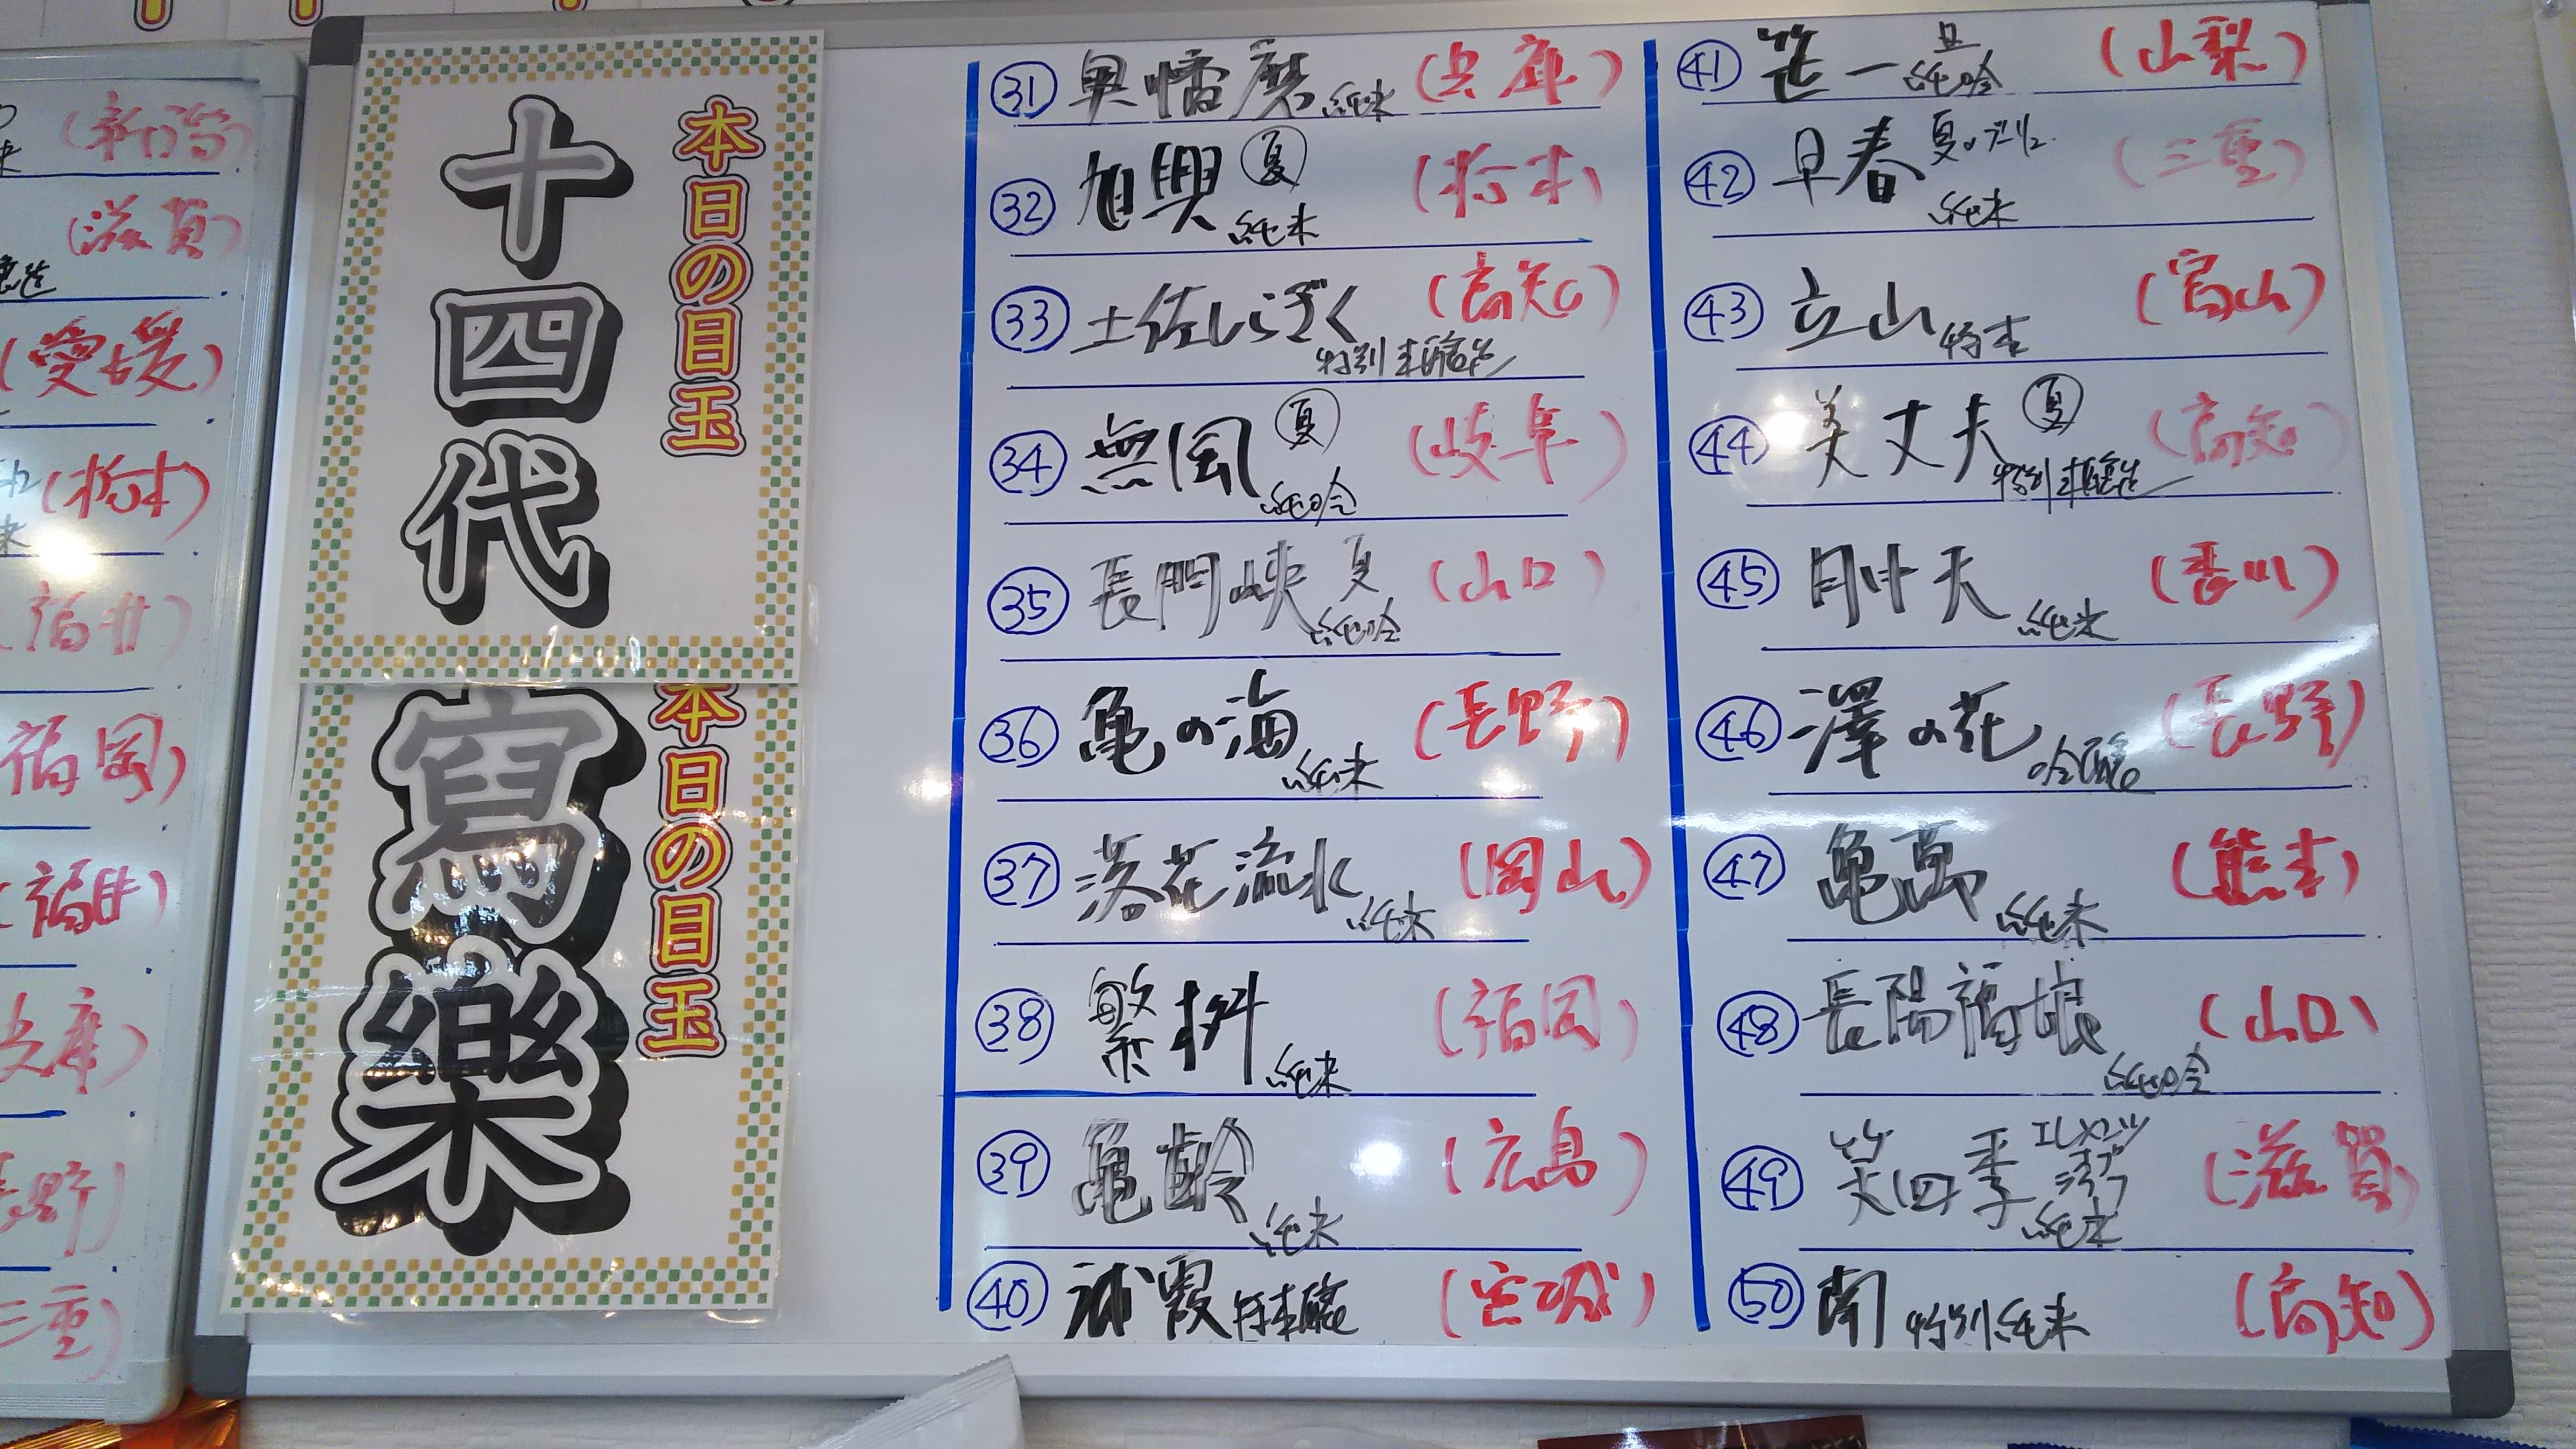 (新潟)
(滋賀)
(愛媛)
(栃木)
(福井)
(福岡)
(福井)
兵庫)
長野)
三重)
本日の目玉
十四代
本日の目玉
寫樂
㉛ 奥播磨 純米 (兵庫)
㉜ 旭興 夏 純米 (栃木)
㉝ 土佐しらぎく 特別本醸造 (高知)
㉞ 無風 夏 純吟 (岐阜)
㉟ 長門峡 夏 純吟 (山口)
㊱ 亀の海 純米 (長野)
㊲ 落花流水 純米 (岡山)
㊳ 繁桝 純米 (福岡)
㊴ 亀齢 純米 (広島)
㊵ 浦霞 本醸 (宮城)
㊶ 笹一 旦 純吟 (山梨)
㊷ 早春 夏の 純米 (三重)
㊸ 立山 特本 (富山)
㊹ 美丈夫 夏 特別本醸造 (高知)
㊺ 月中天 純米 (香川)
㊻ 澤の花 吟醸 (長野)
㊼ 亀萬 純米 (熊本)
㊽ 長陽福娘 純吟 (山口)
㊾ 笑四季 エレメンツ オブ ライフ 純米 (滋賀)
㊿ 南 特別純米 (高知)